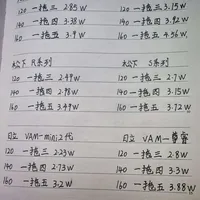 120 一拖三 2.85W 120 一拖三 3.15W
140 一拖四 3.38W 140 一拖四 3.92W
160 一拖五 3.9W 160 一拖五 4.56W
松下 R系列 松下 S系列
120 一拖三 2.49W 120 一拖三 2.7W
140 一拖四 2.98W 140 一拖四 3.15W
160 一拖五 3.49W 160 一拖五 3.72W
日立 VAM-mini2代 日立 VAM一
120 一拖三 2.23W 120 一拖三 2.8W
140 一拖四 2.73W 140 一拖四 3.3W
160 一拖五 3.2W 160 一拖五 3.88W